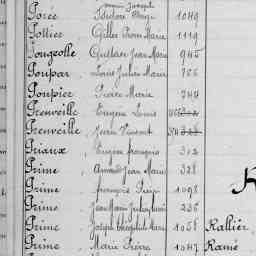 Joseph
Porée Isidore Ange 1049
Pottier Gilles Pierre Marie 1119
Pougeolle Guillaume Jean Marie 945
Poupar Louis Julien Marie 766
Poupier Pierre Marie 744
Prenveille Eugène Louis
Prenveille Jean Vincent
Priaux Eugène François 302
Prime Armand Jean Marie 328
Prime François 1098
Prime Jean Marie 236
Prime Joseph Théophile Marie 1058 Rallier
Prime Marie Pierre 1047 Ramé